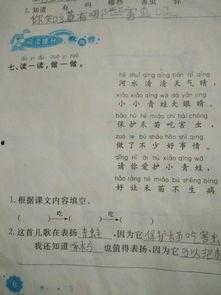 2.知道 有 哪些 害虫 你 吗
你知道有哪些害虫吗
阅读课外
dú yi dú zuò yi zuò
七、读一读,做一做。
hé shuǐ qīng qīng tiān qì qíng
河水清清天气晴,
xiǎo xiǎo qīng wā dà yǎn jīng
小小青蛙大眼睛。
bǎo hù hé miáo chī hài chóng
保护禾苗吃害虫,
zuò le bù shǎo hǎo shì qing
做了不少好事情。
qǐng nǐ ài hù xiǎo qīng wā
请你爱护小青蛙,
hǎo ràng hé miáo bù shēng bìng
好让禾苗不生病
1.根据课文内容填空。
吃 吃
2.这首儿歌在表扬青蛙,因为它保护禾苗吃害虫
我还知道啄木鸟也值得表扬,因为它可以把